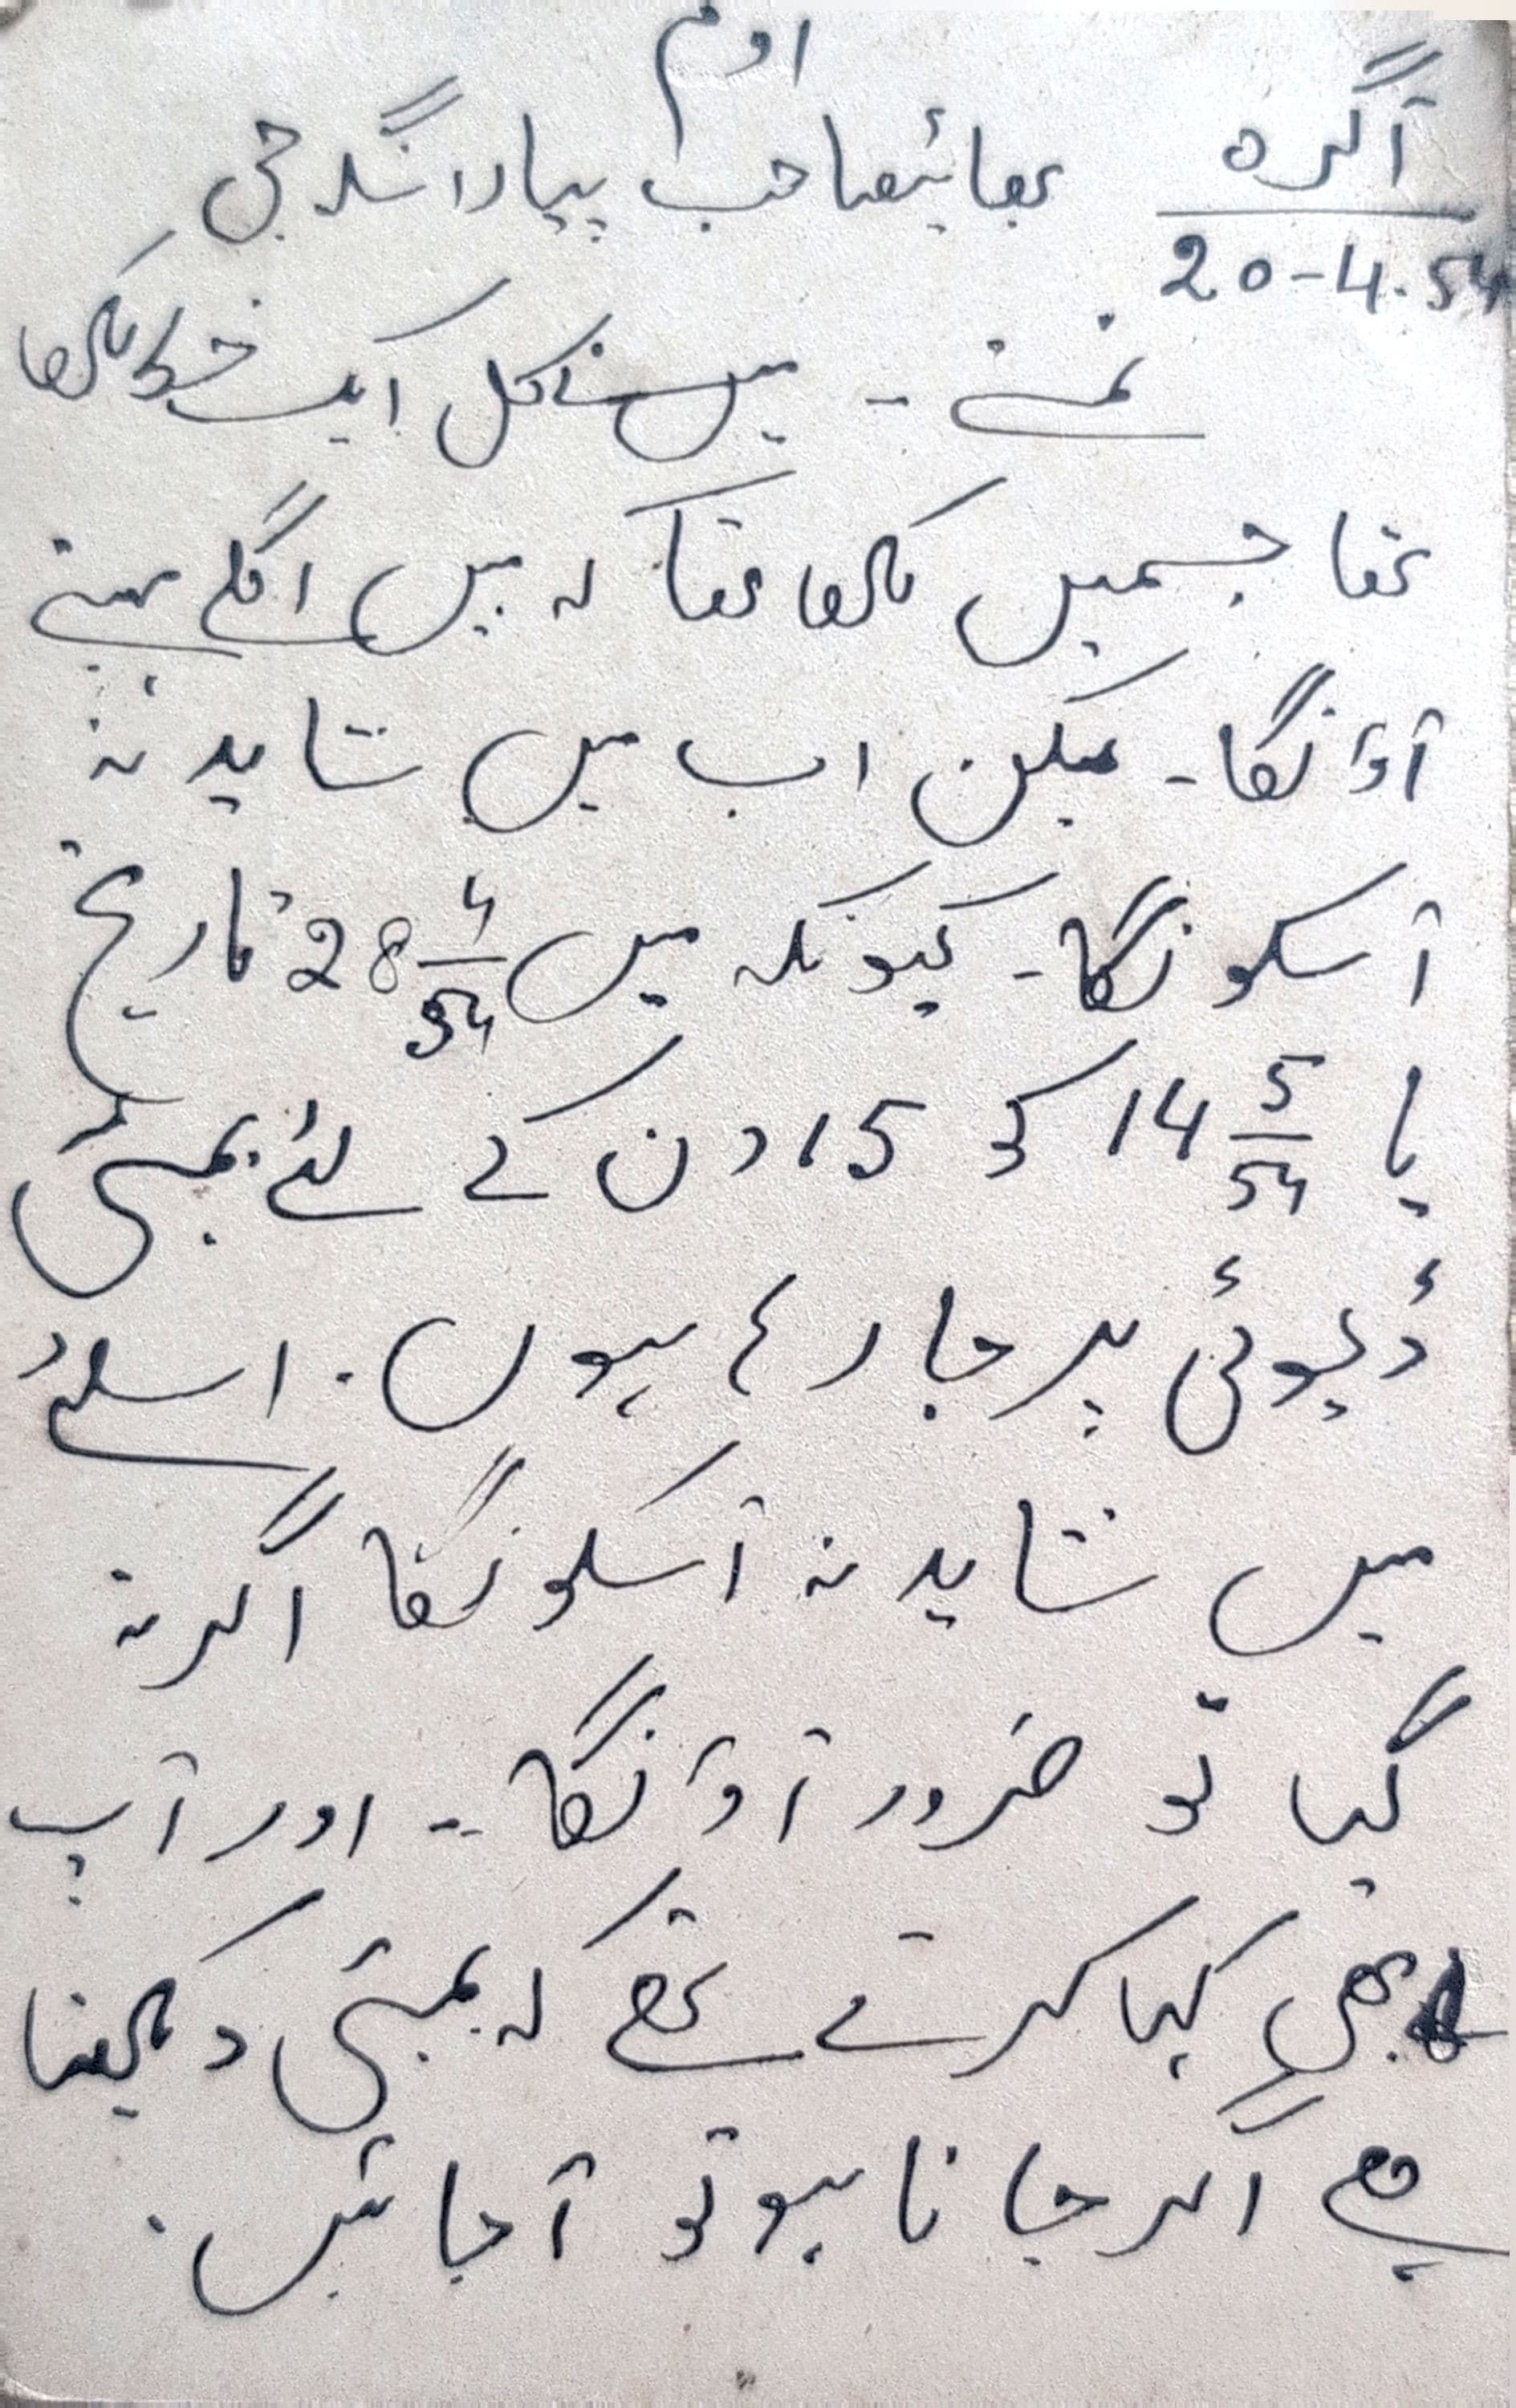 اوم
آگرہ بھائیصاحب پیارا سنگھ جی
20-4.54
نمستے - میں نے کل ایک خط لکھا
تھا جسمیں لکھا تھا کہ میں اگلے مہینے
آؤنگا - لیکن اب میں شاید نہ
آسکونگا - کیونکہ میں 28 4/54 تاریخ
یا 14 5/54 کو 15 دن کے لئے بمبئی
ڈیوٹی پر جا رہا ہوں . اسلئے
میں شاید نہ آسکونگا اگر نہ
گیا تو ضرور آؤنگا - اور آپ
بھی کہا کرتے تھے کہ بمبئی دیکھنا
ہے اگر جانا ہو تو آجائیں .